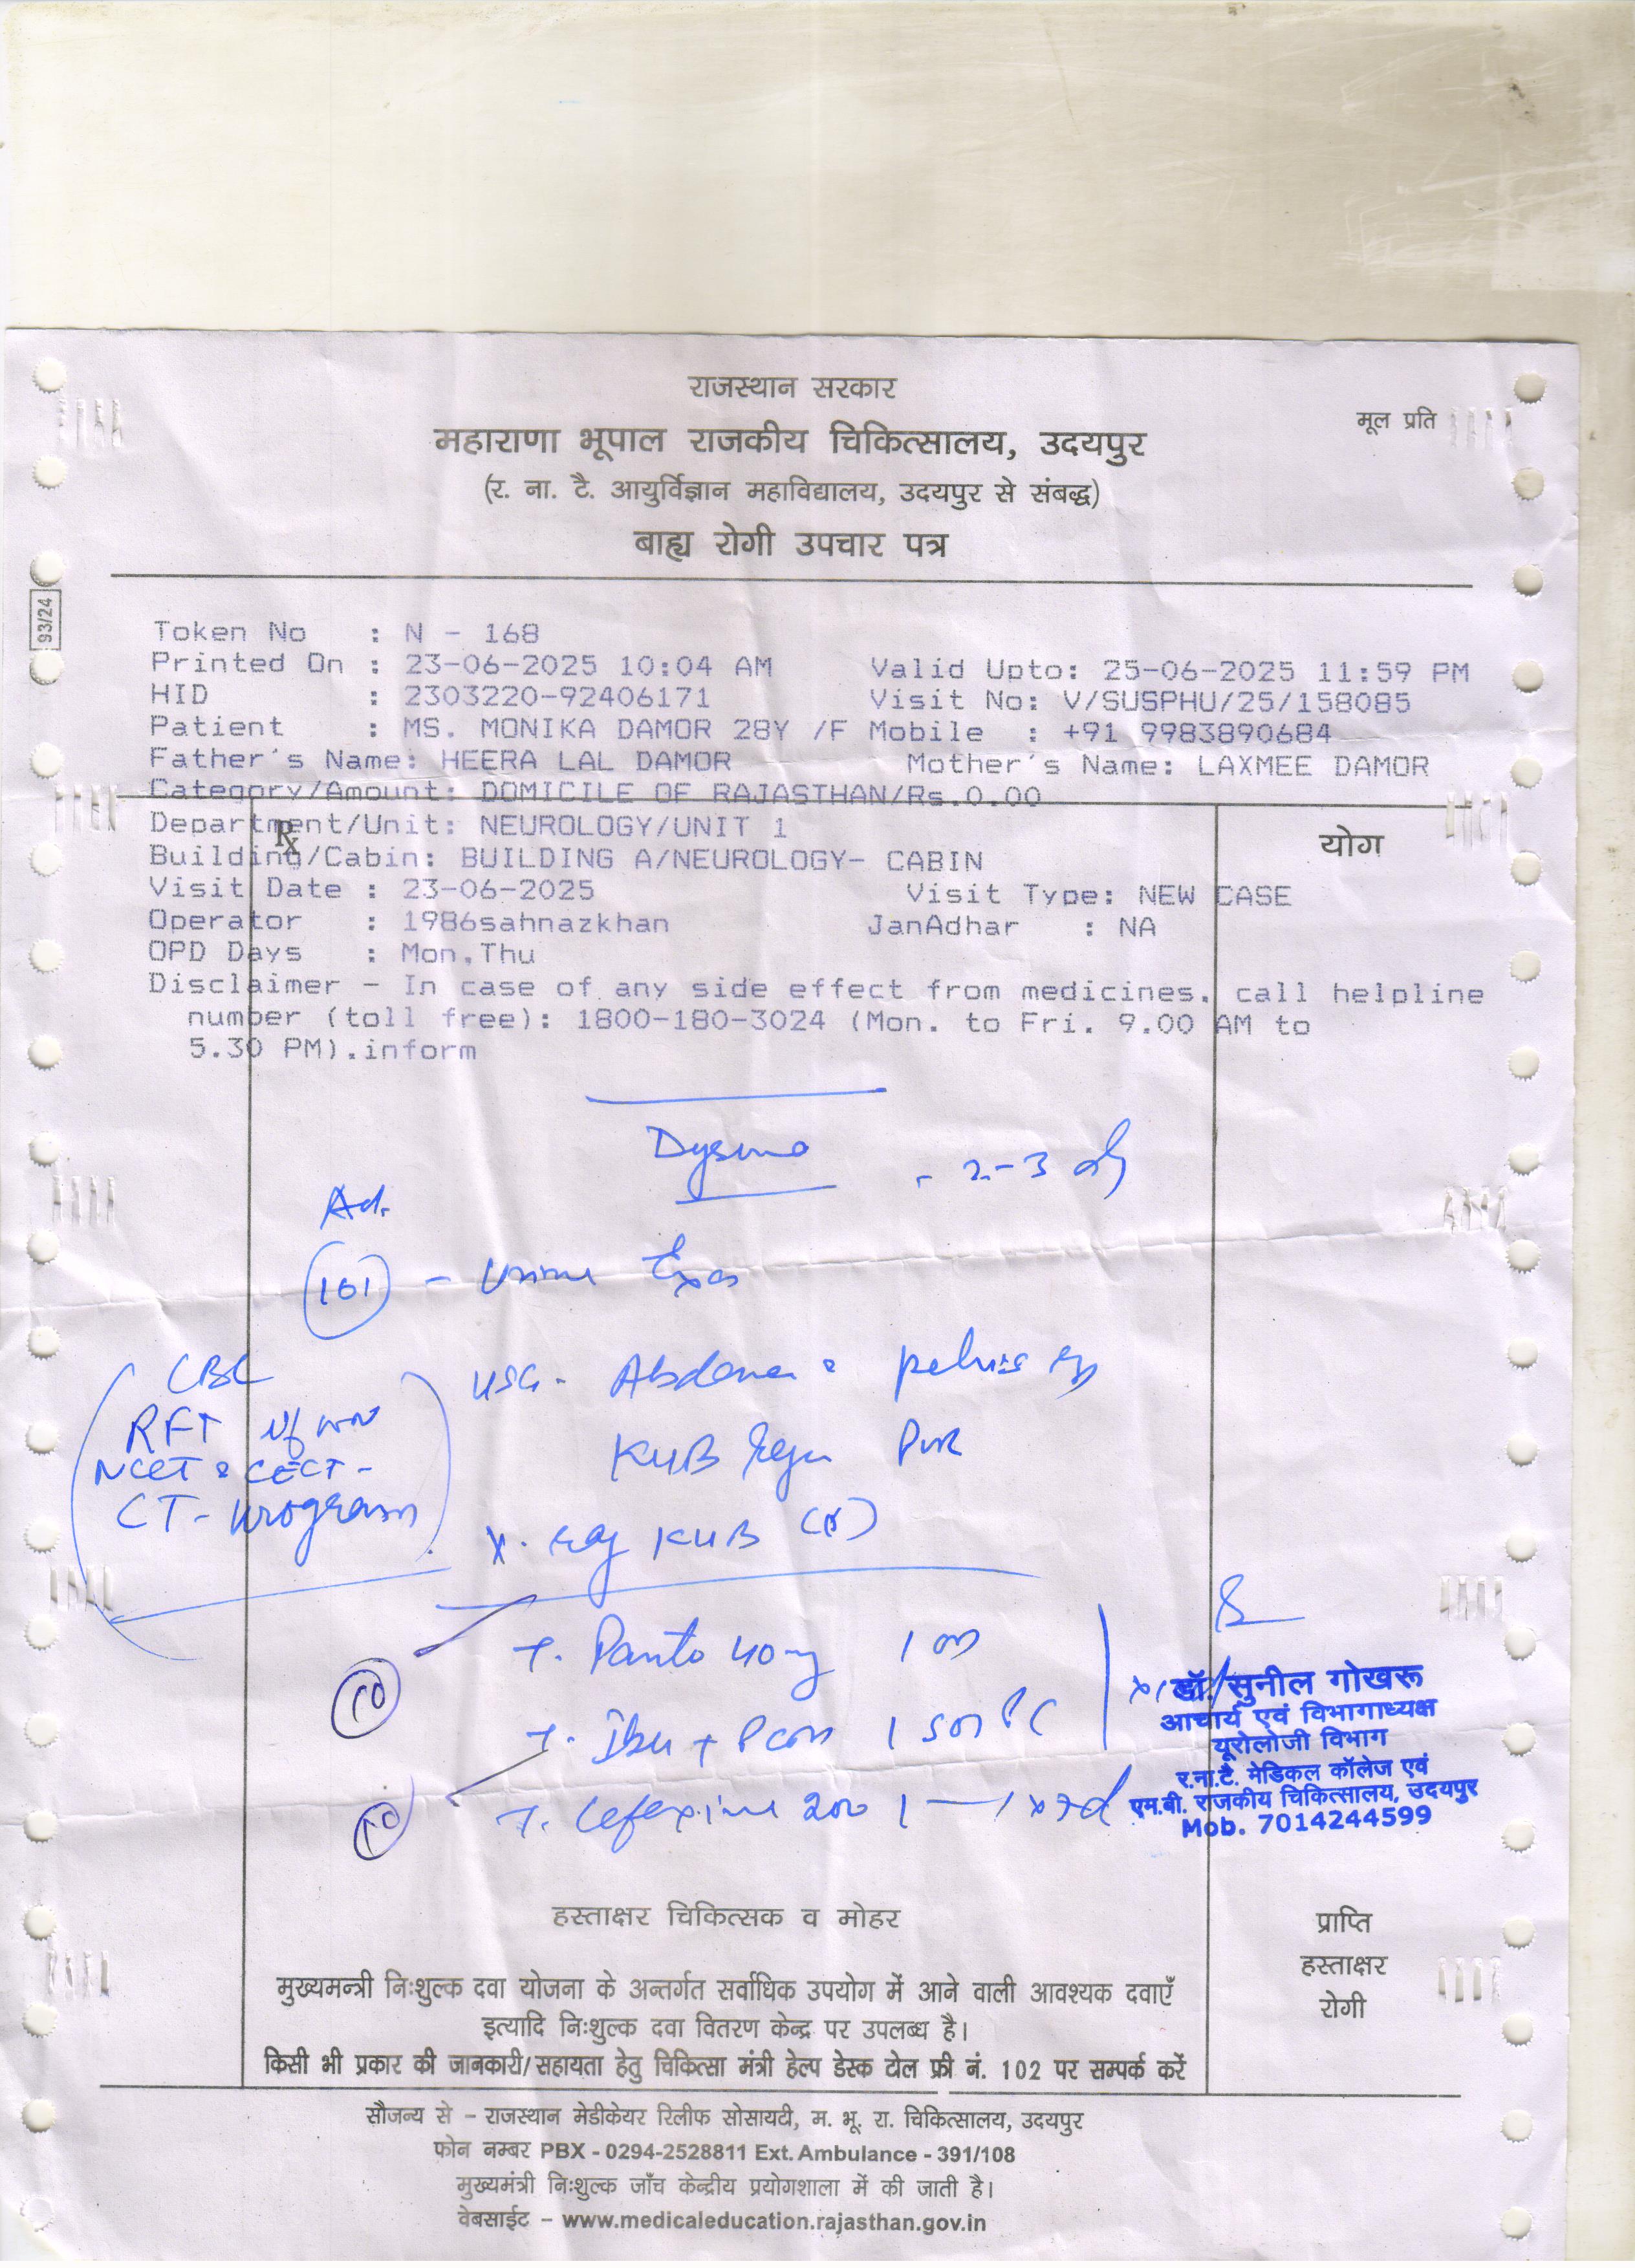 राजस्थान सरकार
मूल प्रति
महाराणा भूपाल राजकीय चिकित्सालय, उदयपुर
(र. ना. टै. आयुर्विज्ञान महाविद्यालय, उदयपुर से संबद्ध)
बाह्य रोगी उपचार पत्र
93/24
Token No : N - 168
Printed On : 23-06-2025 10:04 AM Valid Upto: 25-06-2025 11:59 PM
HID : 2303220-92406171 Visit No: V/SUSPHU/25/158085
Patient : MS. MONIKA DAMOR 28Y /F Mobile : +91 9983890684
Father's Name: HEERA LAL DAMOR Mother's Name: LAXMEE DAMOR
Category/Amount: DOMICILE OF RAJASTHAN/Rs.0.00
Department/Unit: NEUROLOGY/UNIT 1
Rx
योग
Building/Cabin: BUILDING A/NEUROLOGY- CABIN
Visit Date : 23-06-2025 Visit Type: NEW CASE
Operator : 1986sahnazkhan JanAadhar : NA
OPD Days : Mon,Thu
Disclaimer - In case of any side effect from medicines, call helpline
number (toll free): 1800-180-3024 (Mon. to Fri. 9.00 AM to
5.30 PM).inform
- 2-3
Ad.
101 - Urine
CBC
USG - Abdomen pelvis
RFT
KUB PVR
NCCT CECT -
CT- Urogram
X-ray KUB
T. Panto 40mg 1 OD
T. Ibu + Pcm 1 SOS PC
T. Cefixime 200 1 — 1 x 7d
10
10
डॉ. सुनील गोखरू
आचार्य एवं विभागाध्यक्ष
यूरोलोजी विभाग
र.ना.टै. मेडिकल कॉलेज एवं
एम.बी. राजकीय चिकित्सालय, उदयपुर
Mob. 7014244599
हस्ताक्षर चिकित्सक व मोहर
प्राप्ति
हस्ताक्षर
रोगी
मुख्यमन्त्री निःशुल्क दवा योजना के अन्तर्गत सर्वाधिक उपयोग में आने वाली आवश्यक दवाएँ
इत्यादि निःशुल्क दवा वितरण केन्द्र पर उपलब्ध है।
किसी भी प्रकार की जानकारी/सहायता हेतु चिकित्सा मंत्री हेल्प डेस्क टोल फ्री नं. 102 पर सम्पर्क करें
सौजन्य से - राजस्थान मेडीकेयर रिलीफ सोसायटी, म. भू. रा. चिकित्सालय, उदयपुर
फोन नम्बर PBX - 0294-2528811 Ext. Ambulance - 391/108
मुख्यमंत्री निःशुल्क जाँच केन्द्रीय प्रयोगशाला में की जाती है।
वेबसाईट - www.medicaleducation.rajasthan.gov.in